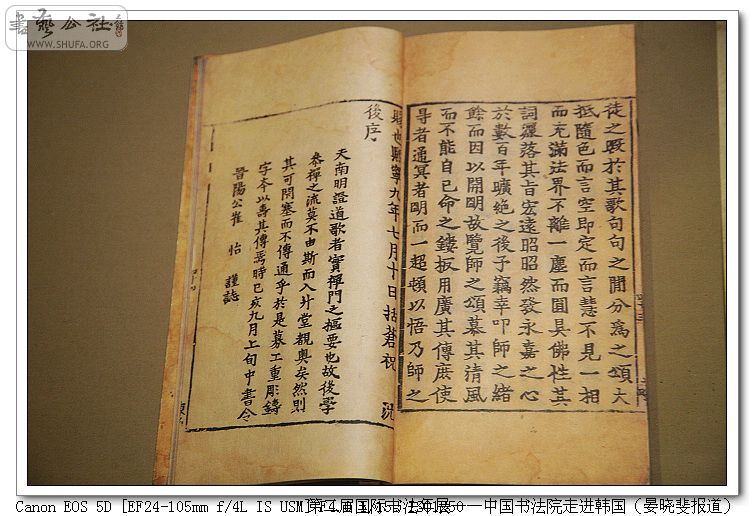 書藝公社
WWW.SHUFA.ORG
徒之毀於其歌句句之閒分爲之頌大
抵隨色而言空即定而言慧不見一相
而充滿法界不離一塵而圓具佛性其
詞灑落其旨宏遠昭昭然發永嘉之心
於數百年曠絕之後予竊幸叩師之緒
餘而因以開明故覽師之頌慕其清風
而不能自已命之鏤板用廣其傳庶使
尋者通冥者明而一超頓以悟乃師之
賜也熈寧九年七月十日括蒼祝 況
後序
夫南明證道歌者實禪門之樞要也故後學
叅禪之流莫不由斯而入升堂覩奧矣然則
其可閇塞而不傳通乎於是募工重彫鑄
字夲以壽其傳焉時巳亥九月上旬中書令
晉陽公崔 怡 謹誌
Canon EOS 5D [EF24-105mm f/4L IS USM] 第二届国际书法年展——中国书法院走进韩国（晏晓斐报道）